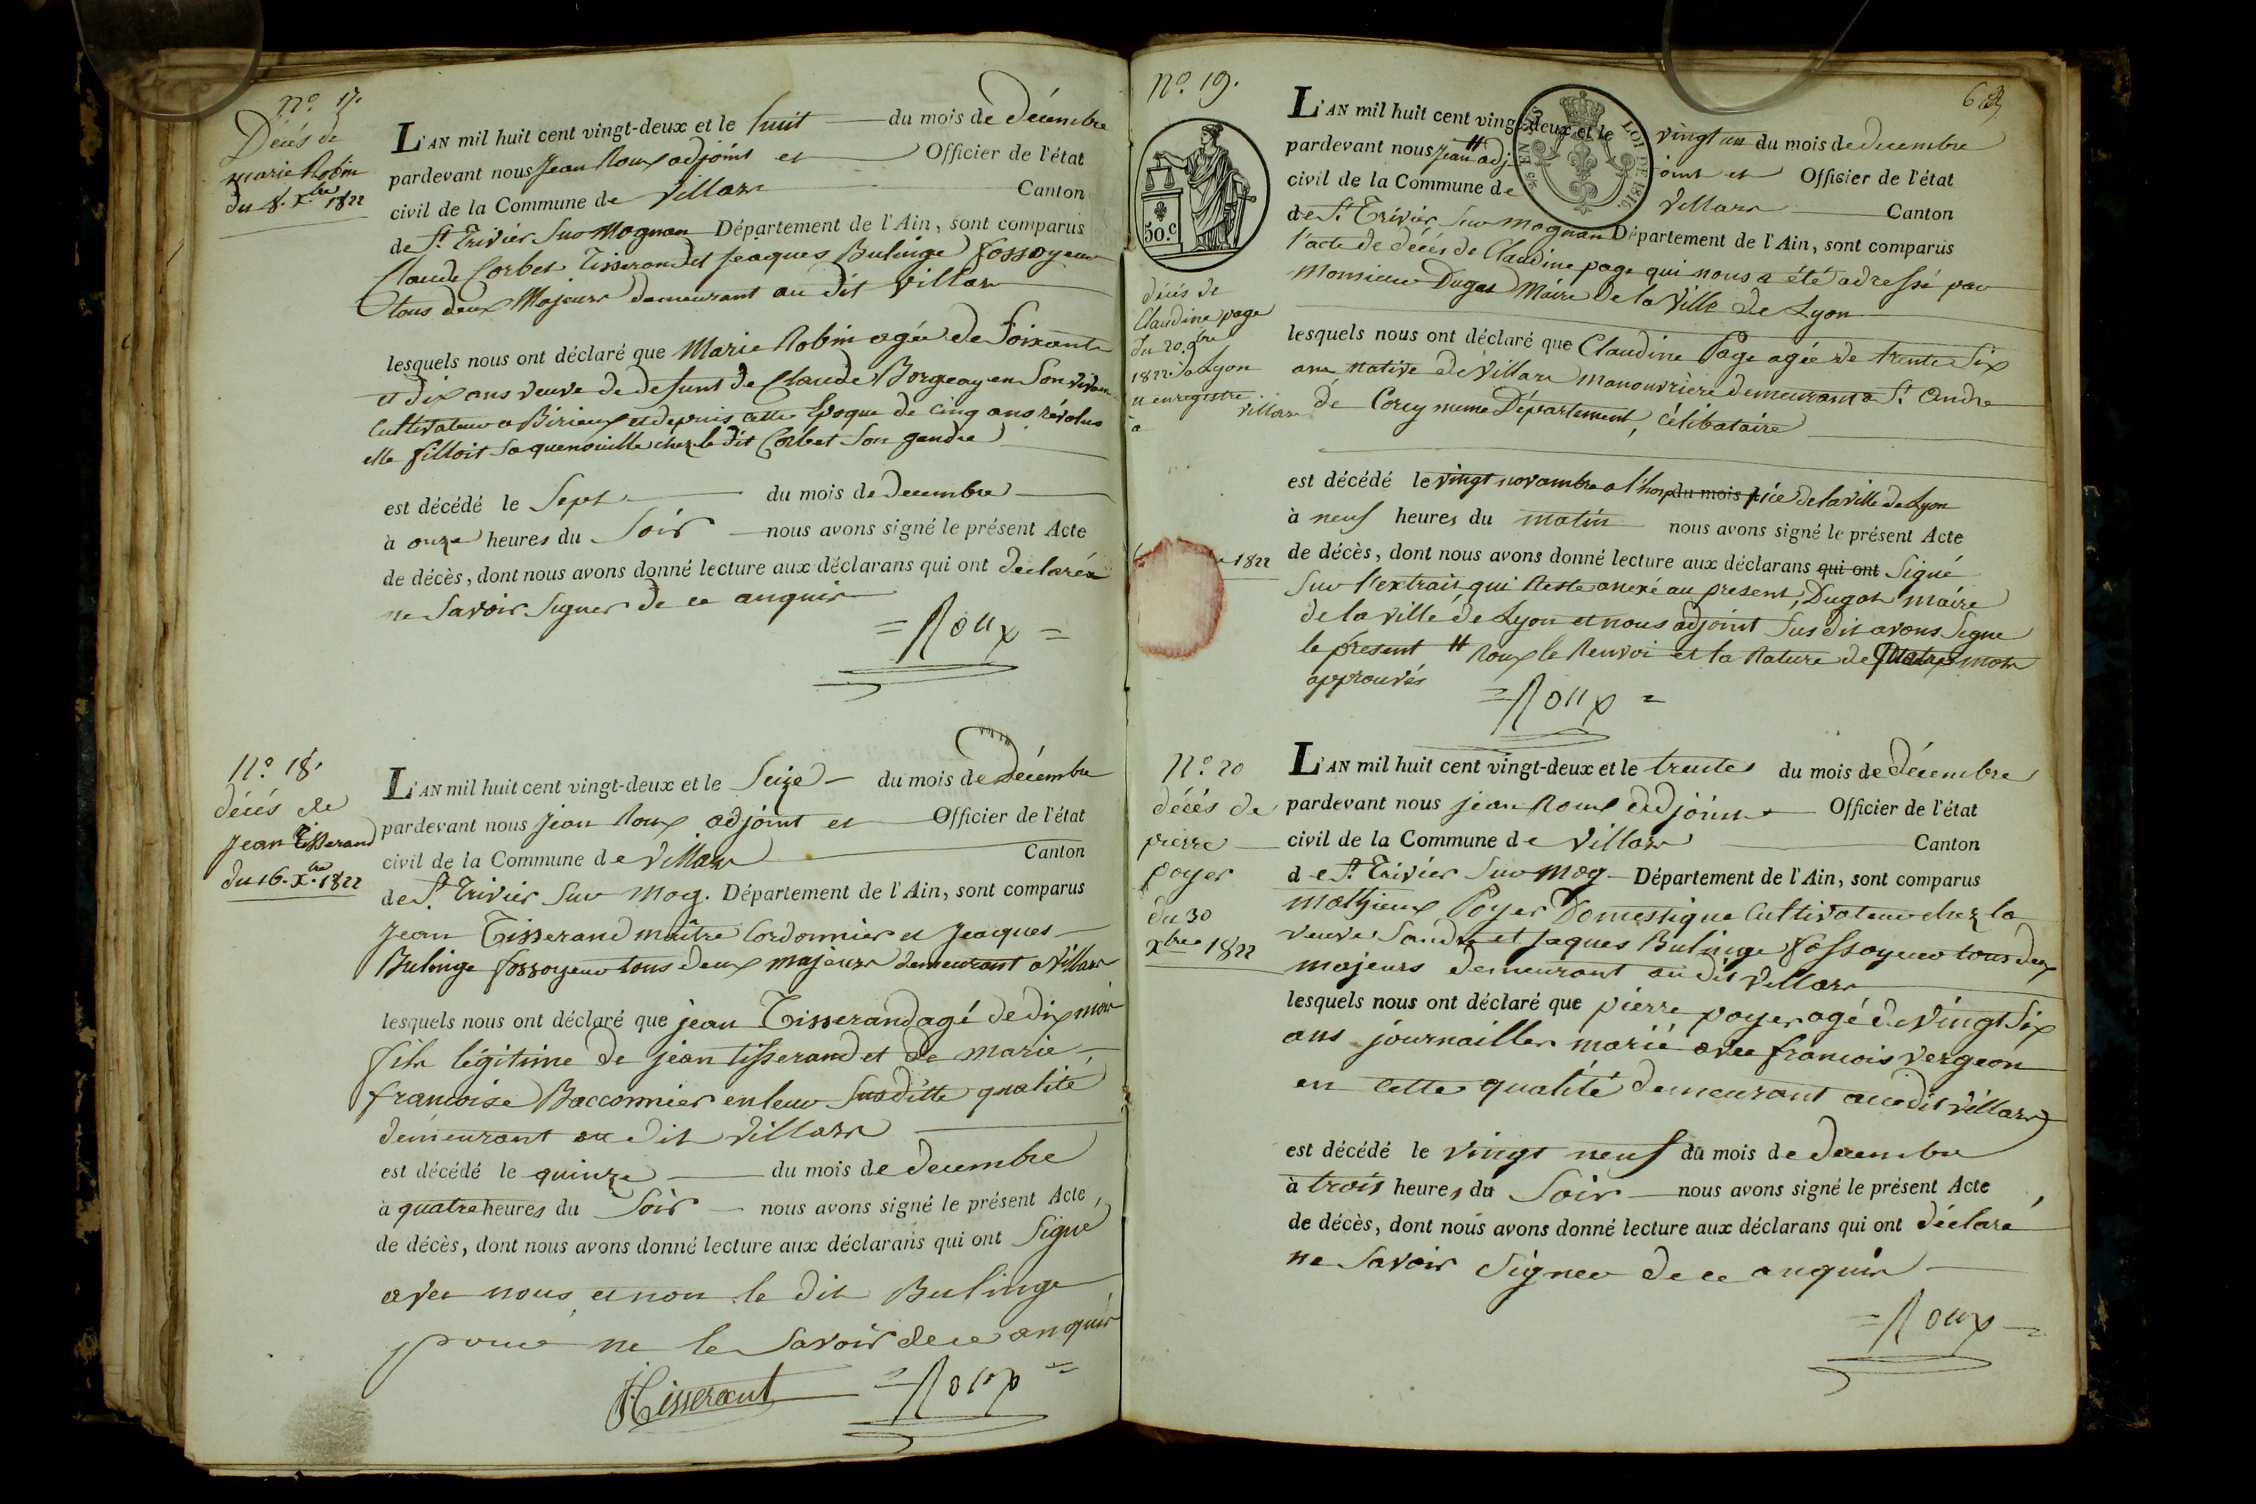 n.o 17.
Décés de
marie Robin
du 8. Xbre 1822
L'AN mil huit cent vingt-deux et le huit du mois de décembre
pardevant nous Jean Roux adjoint et Officier de l'état
civil de la Commune de Villars Canton
de St. Trivier Sur Mognan Département de l'Ain, sont comparus
Claude Corbet Tisserand et Jeaques Bulinge fossoyeur
tous deux Majeurs demeurant au dit Villars
lesquels nous ont déclaré que Marie Robin agée de soixante
et dix ans veuve de defunt de Claude Borgeay en Son vivant
Cultivateur a Birieux et depuis cette Epoque de cinq ans révolus
elle filloit sa quenouille chez le dit Corbet Son gendre
est décédé le Sept du mois de Decembre
à onze heures du Soir nous avons signé le présent Acte
de décès, dont nous avons donné lecture aux déclarans qui ont declarés
ne Savoir Signer de ce anquis
= Roux =
n.o 18.
décés de
Jean Tisserand
du 16. Xbre 1822
L'AN mil huit cent vingt-deux et le Seize du mois de Décembre
pardevant nous Jean Roux adjoint et Officier de l'état
civil de la Commune de Villars Canton
de St. Trivier Sur Mog. Département de l'Ain, sont comparus
Jean Tisserand maître Cordonnier et Jeaques
Bulinge fossoyeur tous deux majeurs demeurant a Villars
lesquels nous ont déclaré que jean Tisserand agé de dix mois
fils légitime de jean tisserand et de marie
francoise Bacconnier en leur Susditte qualité
demeurant au dit Villars
est décédé le quinze du mois de decembre
à quatre heures du Soir nous avons signé le présent Acte
de décès, dont nous avons donné lecture aux déclarans qui ont Signé
avec nous et non le dit Bulinge
pour ne le Savoir de ce anquis
Tisserant = Roux =
n.o 19.
50.c
décés de
Claudine page
du 20. 9bre
1822. a Lyon
et enregistre
a villars
1822
L'AN mil huit cent vingt-deux et le vingt un du mois de decembre
pardevant nous Jean # adjoint et Officier de l'état
civil de la Commune de Villars Canton
de St. Trivier Sur mognan Département de l'Ain, sont comparus
l'acte de décés de Claudine page qui nous a été adressé par
Monsieur Dugas Maire de la Ville de Lyon
lesquels nous ont déclaré que Claudine Page agée de trente Six
ans native de Villars manouvrière demeurant a St. André
de Corcy meme Département, célibataire
est décédé le vingt novembre a l'hospice du mois de la ville de Lyon
à neuf heures du matin nous avons signé le présent Acte
de décès, dont nous avons donné lecture aux déclarans qui ont Signé
Sur l'extrait, qui Reste anexé au present, Dugas maire
de la ville de Lyon et nous adjoint Susdit avons Signe
le present # Roux le Renvoi et la Rature de quatre mots
approuvés
= Roux =
n.o 20
décés de
pierre
poyer
du 30
xbre 1822
L'AN mil huit cent vingt-deux et le trente du mois de décembre
pardevant nous jean Roux adjoint Officier de l'état
civil de la Commune de Villars Canton
de St. Trivier Sur Mog Département de l'Ain, sont comparus
mathieux Poyer Domestique Cultivateur chez la
veuve Sandre et Jaques Bulinge fossoyeur tous deux
majeurs demeurant au dit Villars
lesquels nous ont déclaré que pierre poyer agé de vingt Six
ans journaillier marié avec francois vergeon
en cette qualité demeurant au dit Villars
est décédé le vingt neuf du mois de decembre
à trois heures du Soir nous avons signé le présent Acte
de décès, dont nous avons donné lecture aux déclarans qui ont déclaré
ne Savoir Signer de ce anquis
= Roux =